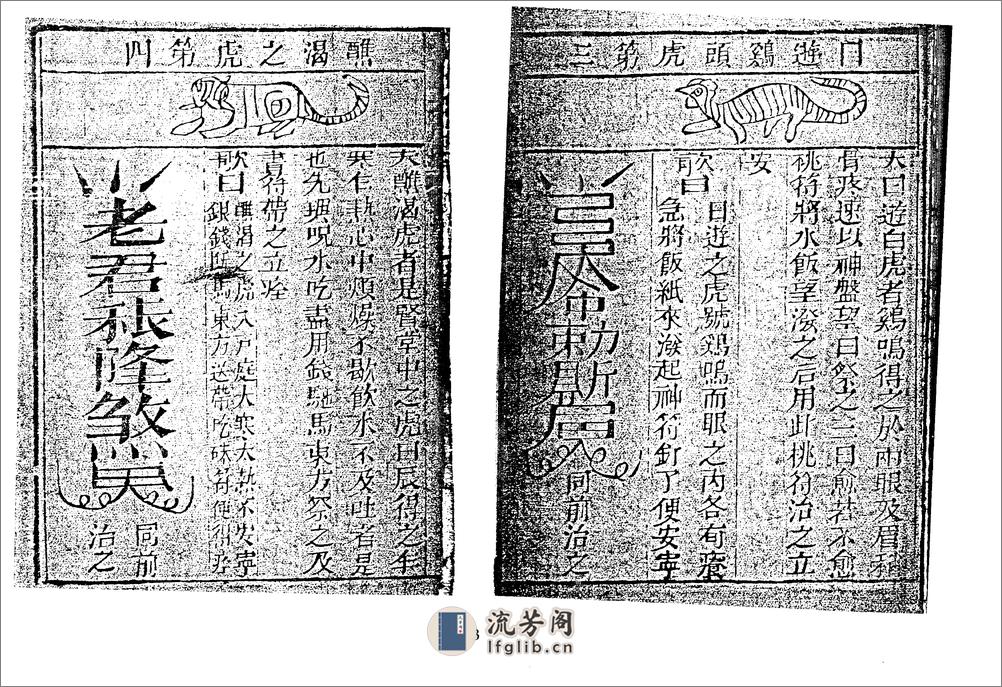 日遊鷄頭虎第三
夫日遊白虎者鷄鳴得之於兩眼及眉
速以神盤望日祭之三日愈若不愈
桃符將水飯望潑之后用此桃符治之立
安
歌曰 日遊之虎號鷄鳴而眼之内各有
前 急將飯紙來潑起神符釘了便安寧
同前治之
醮渴之虎第四
夫醮渴虎者是賢堂中之虎日辰得之
熱心中煩燥不歇飲水不及吐者是
也先 呪水吃盡用錢馳馬東方祭之及
書符帶之立痊
歌曰 醮渴之虎入戸庭大寒大熱不安寧
前 銀錢 馬東方送帶吃硃符便得痊
老君
同前
治之
流芳阁
lfglib.cn
3